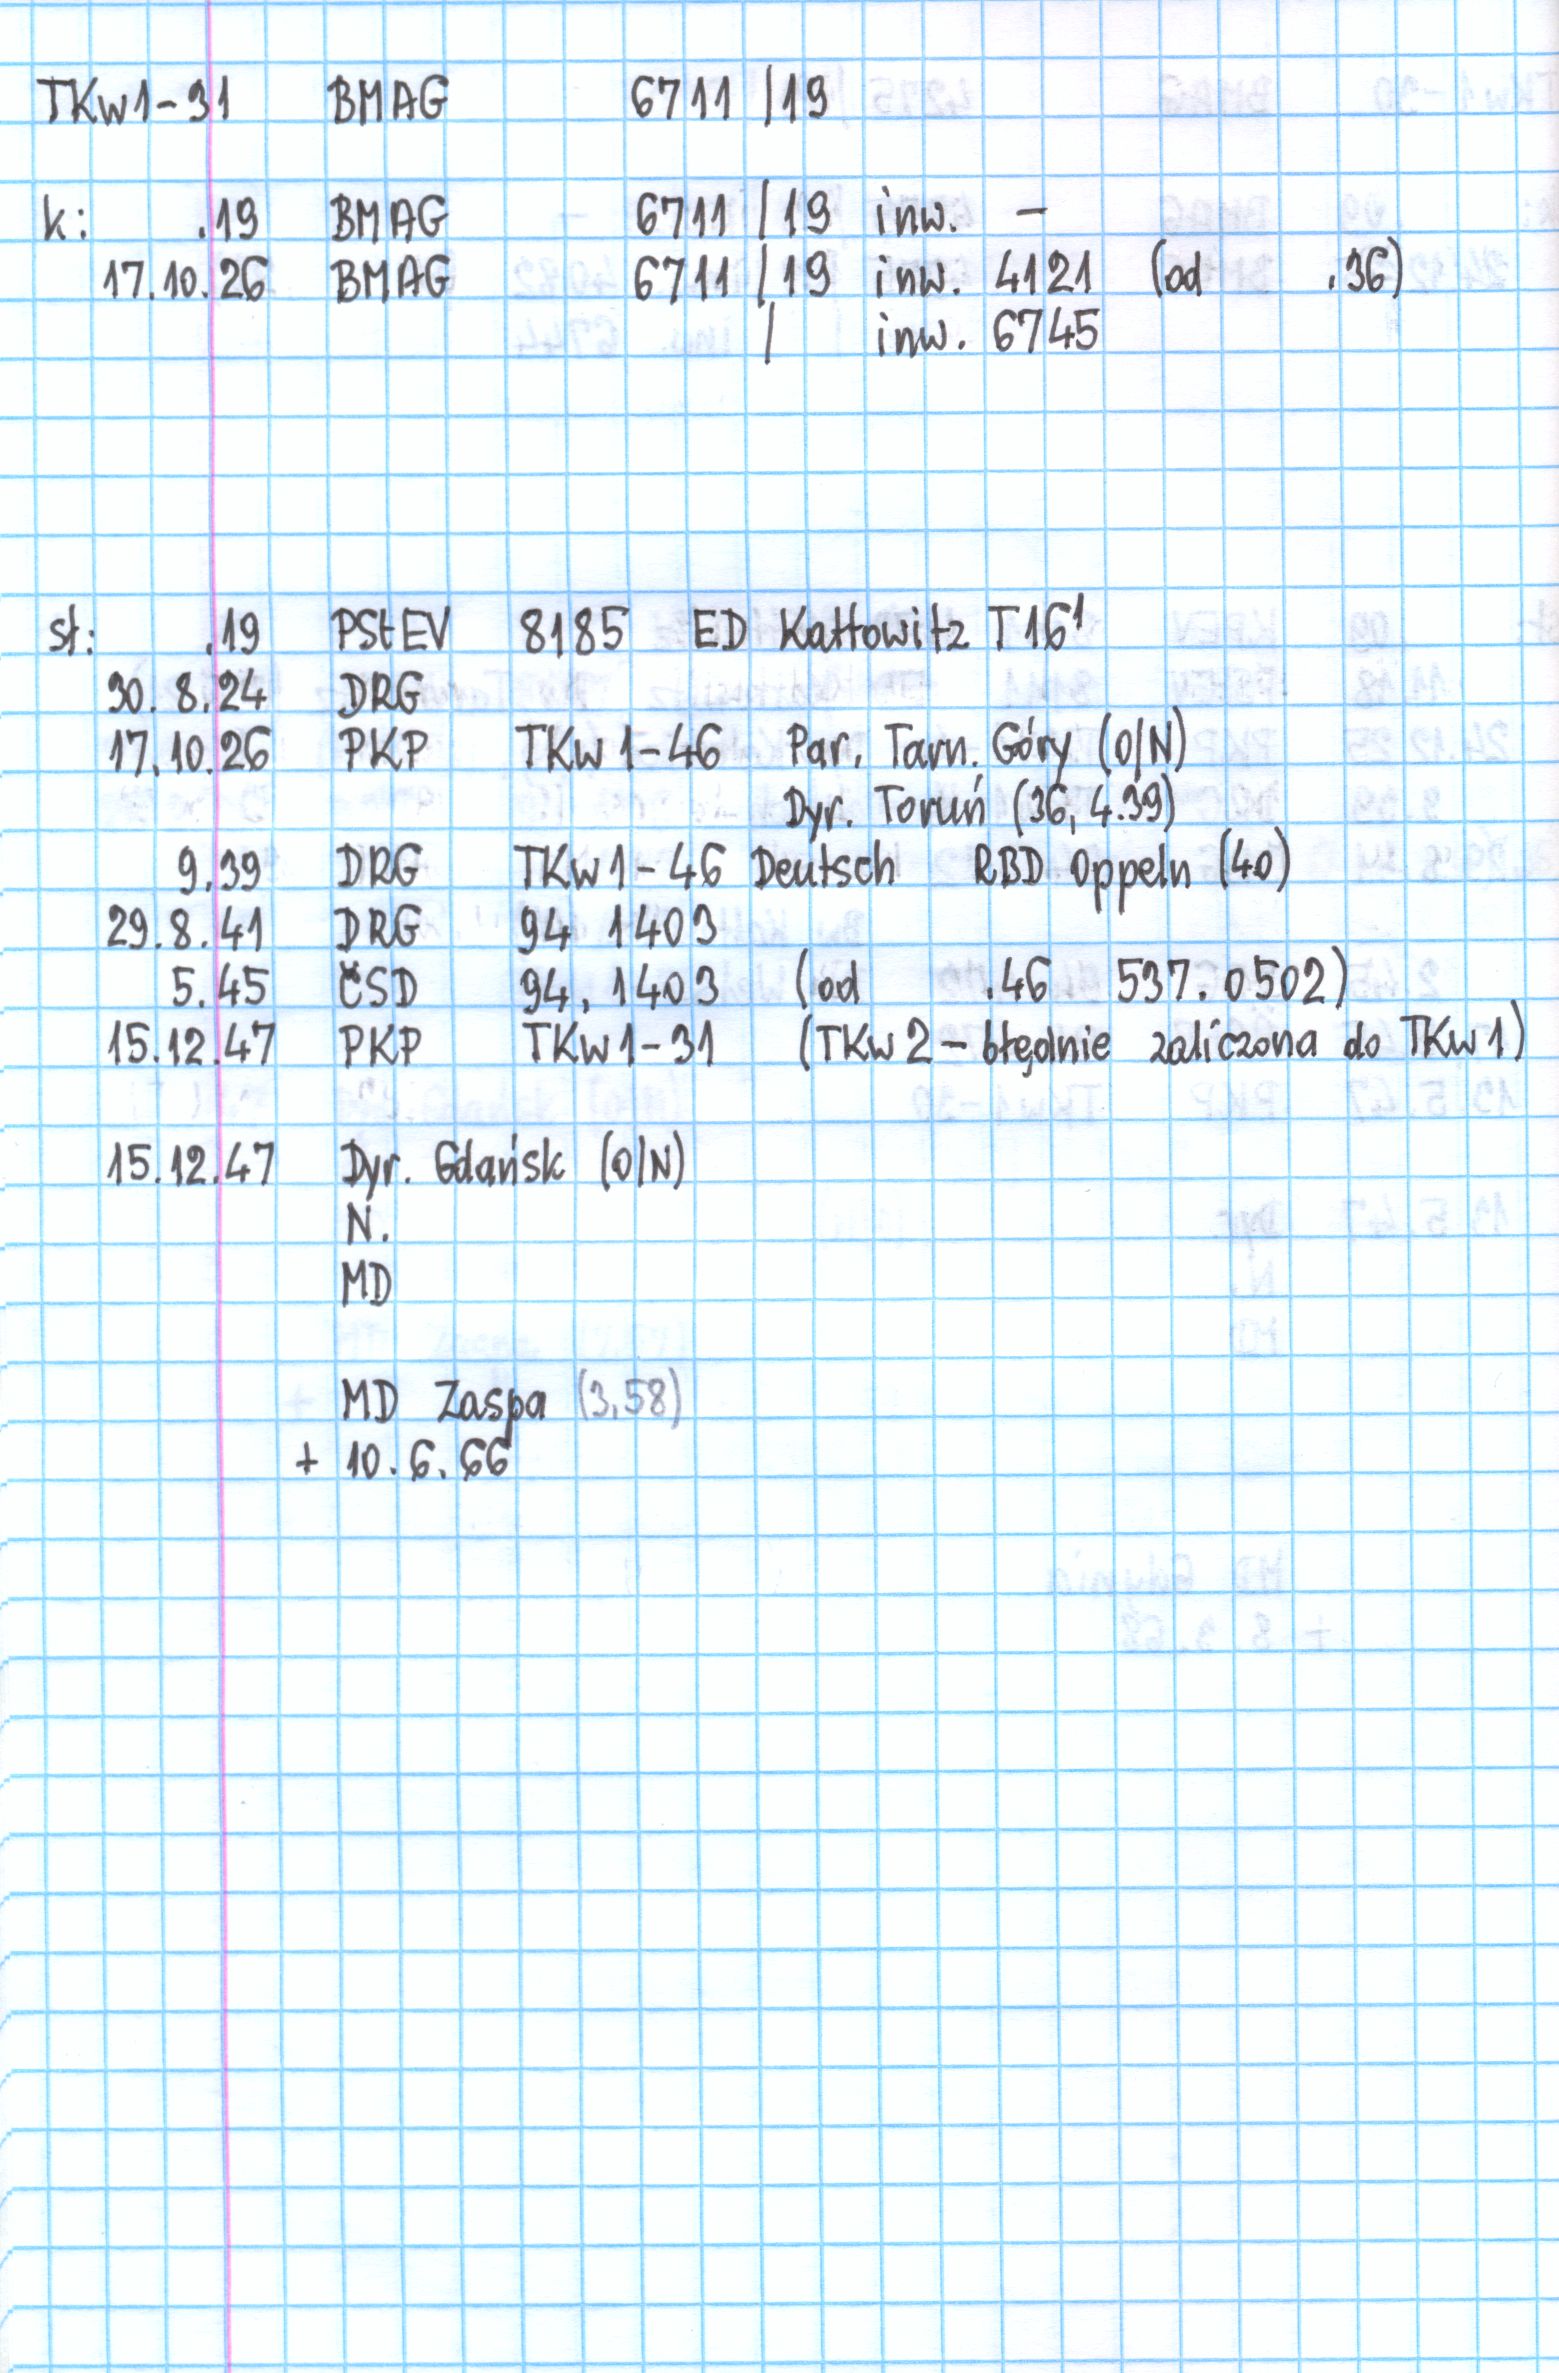 TKw1-31 BMAG 6711 /19
k: .19 BMAG 6711 /19 inw. -
17.10.26 BMAG 6711 /19 inw. 4121 (od .36)
/ inw. 6745
st: .19 PStEV 8185 ED Kattowitz T16¹
30.8.24 DRG
17.10.26 PKP TKw1-46 Par. Tarn. Góry (O/N)
Dyr. Toruń (36, 4.39)
9.39 DRG TKw1-46 Deutsch RBD Oppeln (40)
29.8.41 DRG 94 1403
5.45 ČSD 94.1403 (od .46 537.0502)
15.12.47 PKP TKw1-31 (TKw2 - błędnie zaliczona do TKw1)
15.12.47 Dyr. Gdańsk (O/N)
N.
MD
MD Zaspa (3.58)
+ 10.6.66